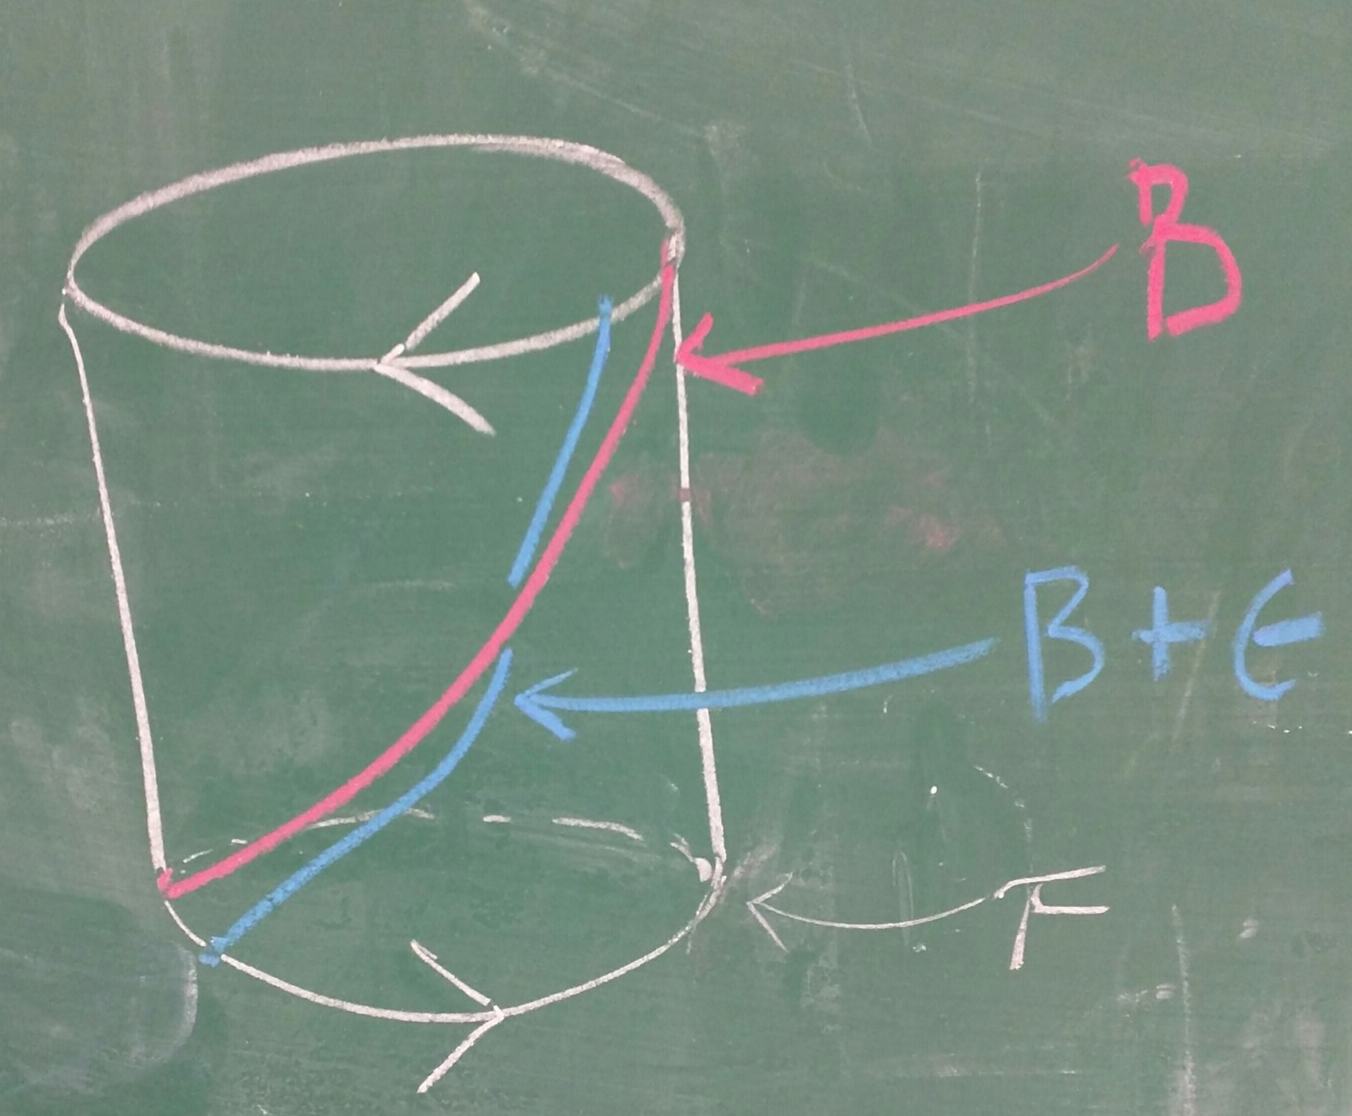 B
B + ϵ
F